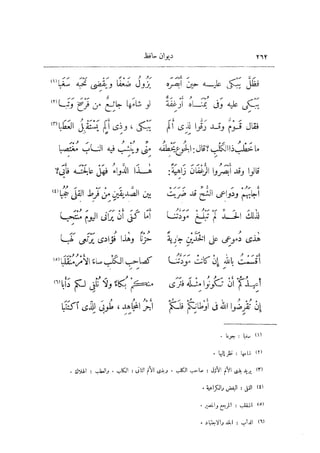 ديوان حافظ
٢٦٢
فظلّ يبكى عليه حين أبصره يزول ضعفًا ويقضى نحبه سغبا (١)
يبكى عليه وفى يمناه أرغفة لو شامها جائع من فرسخ وثبا (٢)
فقال قوم وقد رقّوا لذى ألم يبكى ، وذى ألم يستقبل العطبا (٣)
ما خطب ذا الكلب ؟ قال : الجوع يخطفه منّى وينشب فيه الناب مغتصبا
قالوا وقد أبصروا الرغفان زاهية : هذا الدواء فهل عالجته فأبى ؟
أجابهم ودواعى الشحّ قد ضربت بين الصديقين من فرط القلى حجبا (٤)
لذلك الحدّ لم تبلغ مودّتنا أما كفى أن يرانى اليوم منتحبا
هذى دموعى على الخدّين جارية حزنًا وهذا فؤادى يرتعى لهبا
أقسمت بالله إن كانت مودّتنا كصاحب الكلب ساء الأمر منقلبا (٥)
أعيذكم أن تكونوا مثله فنرى منكم بكاء ولا نلفى لكم دأبا (٦)
إن تقرضوا الله فى أوطانكم فلكم أجر المجاهد ، طوبى للذى اكتتبا
(١) سغبا : جوعا .
(٢) شامها : نظر إليها .
(٣) يريد بذى الألم الأول : صاحب الكلب . وبذى الألم الثانى : الكلب . والعطب : الهلاك .
(٤) القلى : البغض والكراهية .
(٥) المنقلب : المرجع والمصير .
(٦) الدأب : الجد والاجتهاد .